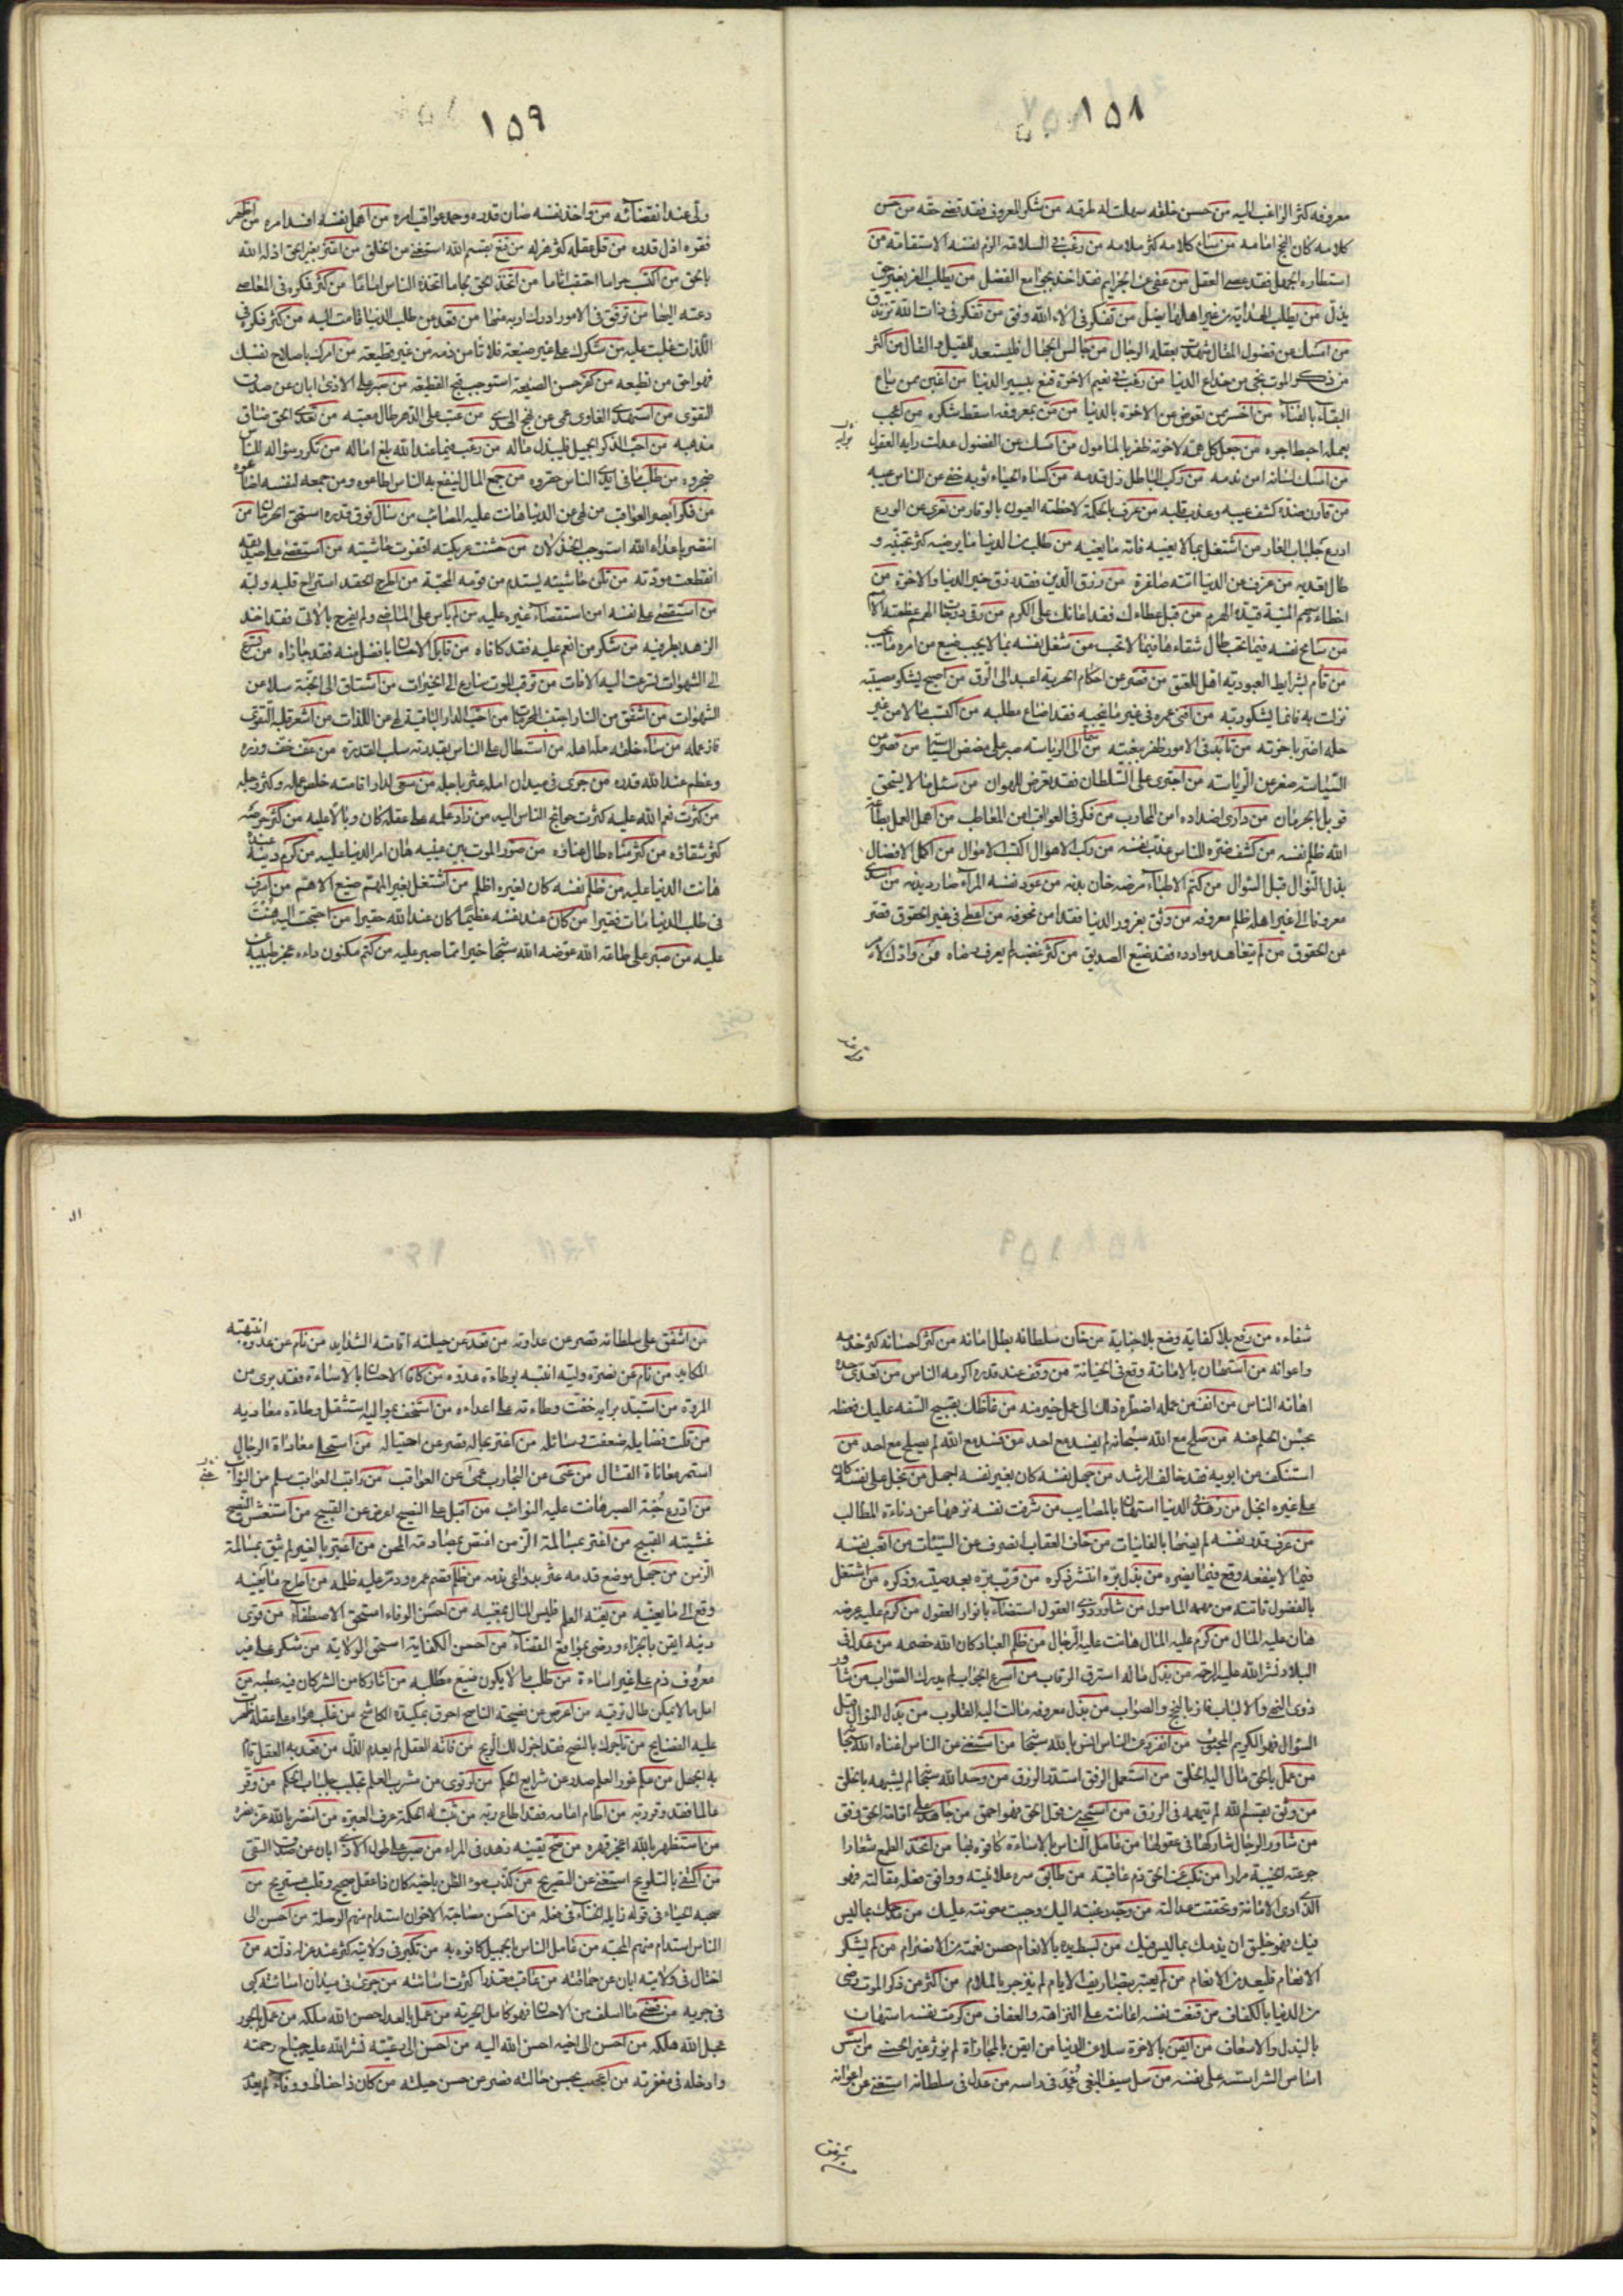 ١٥٨
معروفه كثر الراغب اليه من حسن خلقه سهلت له طرقه من شكر المعروف فقد قضى حقه من حسن
كلامه كان النجح امامه من ساء كلامه كثر ملامه من رغب فى السلامة الزم نفسه الاستقامة من
العقل من عفى عن الجرايم فقد اخذ بجوامع الفضل من يطلب العز بغير حق
يذل من يطلب الهداية من غير اهلها يضل من تفكر فى الاء الله وفق من تفكر فى ذات الله تزندق
من امسك عن فضول المقال شهدت بعقله الرجال من مجالس الجهال فليستعد للقيل والقال من اكثر
من ذكر الموت نجى من خداع الدنيا من رغب فى نعيم الاخرة قنع بيسير الدنيا من اغبن ممن باع
البقاء بالفناء من اخسر ممن تعوض عن الاخرة بالدنيا من من بمعروفه اسقط شكره من اعجب
بعمله احبط اجره من جعل كل همه لاخرته ظفر بالمامول من امسك عن الفضول عدلت رايه العقول
من امسك لسانه امن ندمه من ركب الباطل زل قدمه من كساه الحياء ثوبه خفى عن الناس عيبه
من قارن ضده كشف عيبه وعذب قلبه من عرف بالحكمة لاحظته العيون بالوقار من تعرى عن الورع
ادرع جلباب العار من اشتغل بما لا يعنيه فاته ما يعنيه من طلب من الدنيا ما يرضيه كثر تجنيه و
طال تعديه من عزف عن الدنيا اتته صاغرة من رزق الدين فقد رزق خير الدنيا والاخرة من
اخطاه سهم المنية قيده الهرم من قبل عطاءك فقد اعانك على الكرم من رقى درجات الهمم عظمته الامم
من سامح نفسه فيما يحب طال شقاءها فيما لا تحب من شغل نفسه بما لا يجب ضيع من امره ما يجب
من قام بشرايط العبودية اهل للعتق من قصر عن احكام الحرية اعيد الى الرق من اصبح يشكو مصيبة
نزلت به فانما يشكو ربه من افنى عمره فى غير ما ينجيه فقد اضاع مطلبه من اكتسب مالا من غير
حله اضر باخرته من تايد فى الامور ظفر ببغيته من سما الى الرياسة صبر على مضض السياسة من قصر عن
السياسة صغر عن الرياسة من اجترى على السلطان فقد تعرض للهوان من سئل ما لا يستحق
قوبل بالحرمان من دارى اضداده امن المحارب من فكر فى العواقب امن المعاطب من اهمل العمل بطاعة
الله ظلم نفسه من كشف ضره للناس عذب نفسه من ركب الاهوال اكتسب الاموال من اكمل الافضال
بذل النوال قبل السؤال من كتم الاطباء مرضه خان بدنه من عود نفسه المراء صار ديدنه من اسدى
معروفا الى غير اهله ظلم معروفه من وثق بغرور الدنيا فقد امن مخوفه من اعطى فى غير الحقوق قصر
عن الحقوق من لم يتعاهد موادده فقد ضيع الصديق من كثر غضبه لم يعرف رضاه من وادك لامر
١٥٩
ولى عند انقضائه من واخذ نفسه صان قدره وحمد عواقب امره من اهمل نفسه افسد امره من اظهر
فقره اذل قدره من قل عقله كثر هزله من قنع بقسم الله استغنى عن الخلق من اعتز بغير الحق اذله الله
بالحق من اكتسب حراما احتقب اثاما من اتخذ الحق لجاما اتخذه الناس اماما من كثر فكره فى المعاصى
دعته اليها من ترفق فى الامور ادرك اربه منها من قعد عن طلب الدنيا قامت اليه من كثر فكره فى
اللذات غلبت عليه من شكرك على غير صنيعة فلا تامن ذمه من غير قطيعة من امرك باصلاح نفسك
فهو احق من تطيعه من كفر حسن الصنيعة استوجب قبح القطيعة من صبر على الاذى ابان عن صدق
التقوى من استهدى الغاوى عمى عن نهج الهدى من عتب على الدهر طال معتبه من تعدى الحق ضاق
مذهبه من احب الذكر الجميل فليبذل ماله من رغب فيما عند الله بلغ اماله من تكرر سؤاله للناس
ضجروه من طلب ما فى ايدى الناس حقروه من جمع المال لينفع به الناس اطاعوه ومن جمعه لنفسه اضاعوه
من فكر ابصر العواقب من لهى عن الدنيا هانت عليه المصائب من سال فوق قدره استحق الحرمان من
انتصر باعداء الله استوجب الخذلان من خشنت عريكته اقفرت حاشيته من استقصى على صديقه
انقطعت مودته من تلن حاشيته يستدم من قومه المحبة من اطرح الحقد استراح قلبه ولبه
من استقصى على نفسه امن استقصاء غيره عليه من لم ياس على الماضى ولم يفرح بالاتى فقد اخذ
الزهد بطرفيه من شكر من انعم عليه فقد كافاه من قابل الاحسان بافضل منه فقد جازاه من تسرع
الى الشهوات تسرعت اليه الافات من ترقب الموت سارع الى الخيرات من اشتاق الى الجنة سلا عن
الشهوات من اشفق من النار اجتنب المحرمات من احب الدار الباقية لهى عن اللذات من اشعر قلبه التقوى
فاز عمله من ساء خلقه مله اهله من استطال على الناس بقدرته سلب القدرة من عف خف وزره
وعظم عند الله قدره من جرى فى ميدان امله عثر باجله من سعى لدار اقامته خلص عمله وكثر وجله
من كثرت نعم الله عليه كثرت حوائج الناس اليه من زاد علمه على عقله كان وبالا عليه من كثر حرصه
كثر شقاؤه من كثر مناه طال عناؤه من صور الموت بين عينيه هان امر الدنيا عليه من كرم دينه عنده
هانت الدنيا عليه من ظلم نفسه كان لغيره اظلم من اشتغل بغير المهم ضيع الاهم من اسرف
فى طلب الدنيا مات فقيرا من كان عند نفسه عظيما كان عند الله حقيرا من احتجت اليه هنت
عليه من صبر على طاعة الله عوضه الله سبحانه خيرا مما صبر عليه من كتم مكنون داءه عجز طبيبه عن
شفاءه من رفع بلا كفاية وضع بلا جناية من خان سلطانه بطل امانه من كثر احسانه كثر خدمه
واعوانه من استهان بالامانة وقع فى الخيانة من وقف عند قدره اكرمه الناس من تعدى حده
اهانه الناس من انف من عمله اضطره ذلك الى عمل خير منه من غاظك بقبيح السفه عليك فغظه
بحسن الحلم عنه من صلح مع الله سبحانه لم يفسد مع احد من فسد مع الله لم يصلح مع احد من
استنكف من ابويه فقد خالف الرشد من جهل نفسه كان بغير نفسه اجهل من بخل على نفسه كان
على غيره ابخل من زهد فى الدنيا استهان بالمصايب من شرفت نفسه نزهها عن دناءة المطالب
من عرف قدر نفسه لم يهنها بالفانيات من خاف العقاب انصرف عن السيئات من اتعب نفسه
فيما لا ينفعه وقع فيما يضره من بذل بره انتشر ذكره من قرب بره بعد صيته وذكره من اشتغل
بالفضول فاته من مهمه المامول من شاور ذوى العقول استضاء بانوار العقول من كرم عليه عرضه
هان عليه المال من كرم عليه المال هانت عليه الرجال من ظلم العباد كان الله خصمه من عدل فى
البلاد نشر الله عليه الرحمة من بذل ماله استرق الرقاب من اسرع الجواب لم يدرك الصواب من شاور
ذوى النهى والالباب فاز بالنجح والصواب من بذل معروفه مالت اليه القلوب من بذل النوال قبل
السؤال فهو الكريم المحبوب من انفرد عن الناس انس بالله سبحانه من استغنى عن الناس اغناه الله سبحانه
من عمل بالحق مال اليه الخلق من استعمل الرفق استدر الرزق من وحد الله سبحانه لم يشبهه بالخلق
من وثق بقسم الله لم يتهمه فى الرزق من استحيى من قول الحق فهو احمق من جاهد على اقامة الحق وفق
من شاور الرجال شاركها فى عقولها من عامل الناس بالاساءة كافوه بها من اتخذ الطمع شعارا
جرعته الخيبة مرارا من نكب عن الحق ذم عاقبته من طابق سره علانيته ووافق فعله مقالته فهو
الذى ادى الامانة وتحققت عدالته من وجه رغبته اليك وجبت معونته عليك من مدحك بما ليس
فيك فهو خليق ان يذمك بما ليس فيك من بسط يده بالانعام حصن نعمته من الانصرام من لم يشكر
الانعام فليعد من الانعام من لم يعتبر بتصاريف الايام لم ينزجر بالملام من اكثر من ذكر الموت رضى
من الدنيا بالكفاف من قنعت نفسه اعانته على النزاهة والعفاف من كرمت نفسه استهان
بالبذل والاسعاف من ايقن بالاخرة سلا عن الدنيا من ايقن بالمجازاة لم يؤثر غير الحسنى من اسس
اساس الشر اسسه على نفسه من سل سيف البغى غمد فى راسه من عدل فى سلطانه استغنى عن اعوانه
من اشفق على سلطانه قصر عن عداوته من قعد عن حيلته اقامته الشدايد من نام عن عدوه انبهته
المكايد من نام عن نصرة وليه انتبه بوطاءة عدوه من كافا الاحسان بالاساءة فقد برى من
المروة من استبد برايه خفت وطاءته على اعداءه من استخف بمواليه استثقل وطاءة معاديه
من قلت فضايله ضعفت وسائله من اغتر بحاله قصر عن احتياله من استحلى معاداة الرجال
استمر معاناة القتال من غنى عن التجارب عمى عن العواقب من راقب العواقب سلم من النوائب
من ادرع جنة الصبر هانت عليه النوائب من اقبل على النصيح اعرض عن القبيح من استغش النصيح
غشيه القبيح من اغتر بمسالمة الزمن اغتص بمصادمة المحن من اعتبر بالغير لم يثق بمسالمة
الزمن من جهل موضع قدمه عثر بدواعى ندمه من ظلم قصم عمره ودمر عليه ظلمه من اطرح ما يعنيه
وقع الى ما لا يعنيه من لم يفده العلم فليس المال بمفيده من احسن الوفاء استحق الاصطفاء من قوى
دينه ايقن بالجزاء ورضى بمواقع القضاء من احسن الكفاية استحق الولاية من شكر على غير
معروف ذم على غير اساءة من طلب ما لا يكون ضيع مطلبه من اثار كامن الشر كان فيه عطبه من
امل ما لا يمكن طال ترقبه من اعرض عن نصيحة الناصح احرق بمكيدة الكاشح من غلب هواه على عقله ظهرت
عليه الفضايح من تاجرك بالنصح فقد اجزل لك الربح من فاته العقل لم يعدم الذل من قعد به العقل قام
به الجهل من علم غور العلم صدر عن شرايع الحكم من ارتوى من مشرب العلم تجلبب جلباب الحكم من وقر
عالما فقد وقر ربه من اطاع امامه فقد اطاع ربه من ثبتت له الحكمة عرف العبرة من انتصر بالله عز نصره
من استظهر بالله اعجز قهره من صح يقينه زهد فى المراء من صبر على طول الاذى ابان عن صدق التقى
من اكتفى بالتلويح استغنى عن التصريح من كذب سوء الظن باخيه كان ذا عقل صحيح وقلب مستريح من
صحبه الحياء فى قوله زايله الخناء فى فعله من احسن مصاحبة الاخوان استدام منهم الوصلة من احسن الى
الناس استدام منهم المحبة من عامل الناس بالجميل كافوه به من تكبر فى ولايته كثر عند عزله ذلته من
اختال فى ولايته ابان عن حماقته من عاقب معتذرا كثرت اساءته من جرى فى ميدان اساءته كبى
فى جريه من قضى ما اسلف من الاحسان فهو كامل الحرية من عمل بالعدل حصن الله ملكه من عمل بالجور
عجل الله هلكه من احسن الى اخيه احسن الله اليه من احسن الى رعيته نشر الله عليه جناح رحمته
وادخله فى مغفرته من اعجب بحسن حالته قصر عن حسن حيلته من كان ذا حفاظ ووفاء لم يعدم